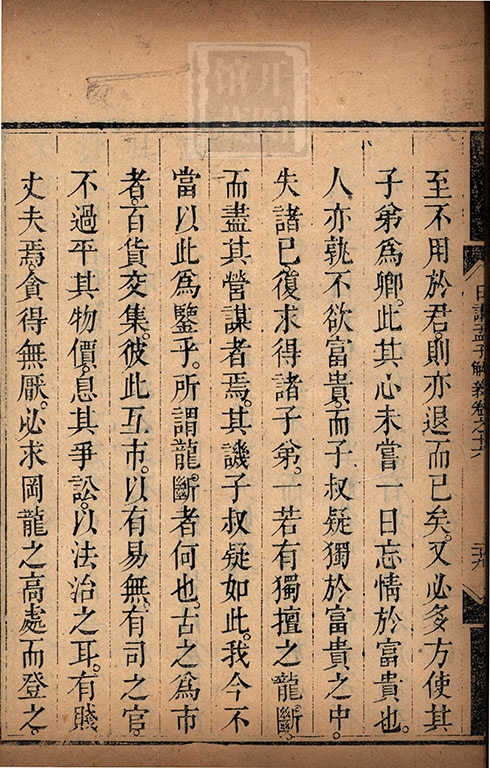 日講孟子解義卷之十六
至不用於君則亦退而已矣又必多方使其
子弟為卿。此其心未嘗一日忘情於富貴也。
人亦孰不欲富貴而子叔疑獨於富貴之中。
失諸已復求得諸子弟。一若有獨擅之龍斷。
而盡其營謀者焉。其譏子叔疑如此。我今不
當以此為鑒乎。所謂龍斷者何也。古之為市
者。百貨交集。彼此互市。以有易無。有司之官。
不過平其物價。息其爭訟。以法治之耳。有賤
丈夫焉。貪得無厭。必求岡龍之高處而登之。